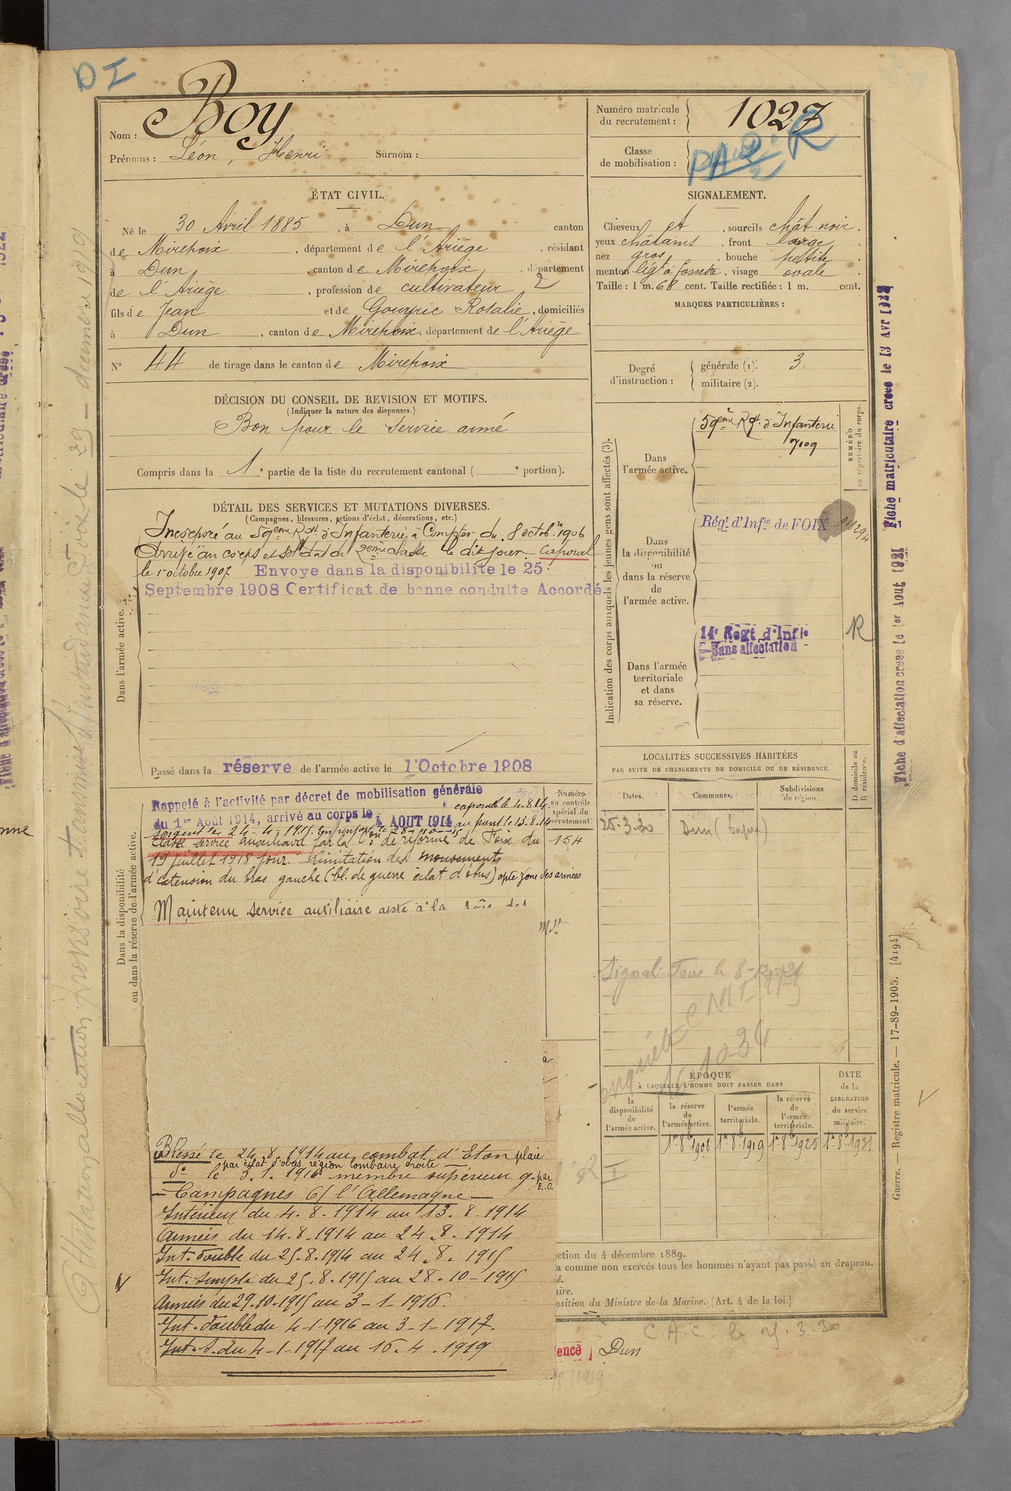 DI
Nom : Boy
Prénoms : Léon, Henri Surnom :
Numéro matricule du recrutement : 1027
Classe de mobilisation :
R
ÉTAT CIVIL.
Né le 30 Avril 1885, à Dun canton
de Mirepoix, département de l'Ariège, résidant
à Dun, canton de Mirepoix, département
de l'Ariège, profession de cultivateur
fils de Jean et de Gouyric Rosalie, domiciliés
à Dun, canton de Mirepoix, département de l'Ariège
N° 44 de tirage dans le canton de Mirepoix
SIGNALEMENT.
Cheveux et, sourcils chât noir.
yeux châtains, front large
nez gros, bouche petite
menton à fossette, visage ovale
Taille : 1 m. 68 cent. Taille rectifiée : 1 m. cent.
MARQUES PARTICULIÈRES :
Degré d'instruction : générale (1). 3
militaire (2).
DÉCISION DU CONSEIL DE REVISION ET MOTIFS.
(Indiquer la nature des dispenses.)
Bon pour le service armé
Compris dans la 1e partie de la liste du recrutement cantonal ( e portion).
DÉTAIL DES SERVICES ET MUTATIONS DIVERSES.
(Campagnes, blessures, actions d'éclat, décorations, etc.)
Incorporé au 59ème Rgt d'Infanterie à Compter du 8 octobre 1906
Arrivé au corps et soldat de 2ème classe le dit jour. Caporal
le 1 octobre 1907 Envoye dans la disponibilité le 25
Septembre 1908 Certificat de bonne conduite Accordé
Dans l'armée active.
Passé dans la réserve de l'armée active le 1 Octobre 1908
Indication des corps auxquels les jeunes gens sont affectés (3).
NUMÉRO au répertoire du corps.
Dans l'armée active.
59ème Rgt d'Infanterie
7009
Dans la disponibilité ou dans la réserve de l'armée active.
Régt d'Infie de FOIX
Dans l'armée territoriale et dans sa réserve.
14e Régt d'Infie
Sans affectation
R
Fiche matriculaire creee le 13 Avr 1922
Fiche d'affectation creee le 1er Aout 1921
Dans la disponibilité ou dans la réserve de l'armée active.
Rappelé à l'activité par décret de mobilisation générale
du 1er Aout 1914, arrivé au corps le 4 AOUT 1914
Sergent le 24-4-1915
Classé service auxiliaire par la Con de réforme de Foix du
19 juillet 1918 pour limitation des mouvements
d'extension du bras gauche (bl. de guerre éclat d'obus) apte zone des armées
Maintenu service auxiliaire
Numéro au contrôle spécial du recrutement.
154
LOCALITÉS SUCCESSIVES HABITÉES
PAR SUITE DE CHANGEMENTS DE DOMICILE OU DE RÉSIDENCE.
Dates. Communes. Subdivisions de région. D domicile ou R résidence.
25-3-30 Dun
enquête
ÉPOQUE
À LAQUELLE L'HOMME DOIT PASSER DANS
la disponibilité de l'armée active.
la réserve de l'armée active.
l'armée territoriale.
la réserve de l'armée territoriale.
DATE de la LIBÉRATION du service militaire.
1er 8bre 1908 1er 8bre 1919 1er 8bre 1925 1er 8bre 1931
Blessé le 24-8-1914 au combat d'Eton plaie
par éclat d'obus région lombaire droite
do le 3.1.1916 membre supérieur g. par E.O.
Campagnes C/ l'Allemagne
Intérieur du 4.8.1914 au 13.8.1914
Armées du 14.8.1914 au 24.8.1914
Int. double du 25.8.1914 au 24.8.1915
Int. simple du 25.8.1915 au 28-10-1915
Armées du 29.10.1915 au 3-1-1916.
Int. double du 4-1-1916 au 3-1-1917.
Int. s. du 4-1-1917 au 16.4.1919
ction du 4 décembre 1889.
a comme non exercés tous les hommes n'ayant pas passé au drapeau.
osition du Ministre de la Marine. (Art. 4 de la loi.)
C.A.C. le 25.3.30
ence Dun
Guerre. — Registre matricule. — 17-89-1905. [4194]